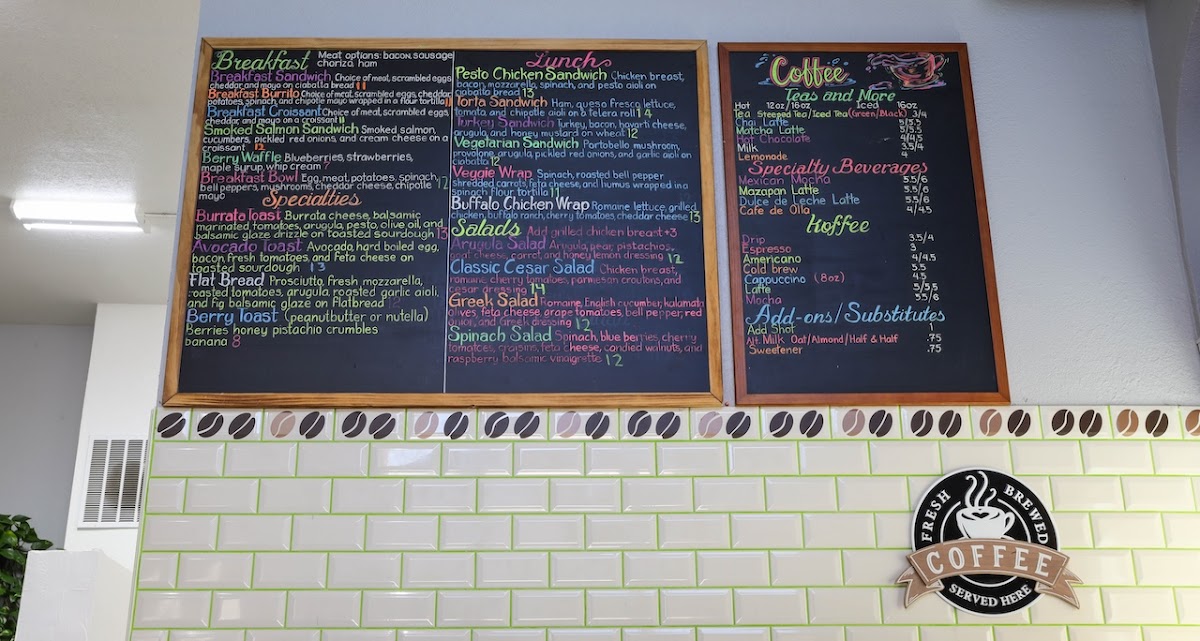 Breakfast Meat options: bacon, sausage
chorizo, ham
Breakfast Sandwich Choice of meat, scrambled eggs,
cheddar and mayo on ciabatta bread 11
Breakfast Burrito Choice of meat, scrambled eggs, cheddar
potatoes, spinach, and chipotle mayo wrapped in a flour tortilla 11
Breakfast Croissant Choice of meat, scrambled eggs,
cheddar, and mayo on a croissant 11
Smoked Salmon Sandwich Smoked salmon,
cucumbers, pickled red onions, and cream cheese on a
croissant 12
Berry Waffle Blueberries, strawberries,
maple syrup, whip cream 7
Breakfast Bowl Egg, meat, potatoes, spinach,
bell peppers, mushrooms, cheddar cheese, chipotle 12
mayo
Specialties
Burrata Toast Burrata cheese, balsamic
marinated tomatoes, arugula, pesto, olive oil, and
balsamic glaze drizzle on toasted sourdough 13
Avocado Toast Avocado, hard boiled egg,
bacon, fresh tomatoes, and feta cheese on
toasted sourdough 13
Flat Bread Prosciutto, Fresh mozzarella,
roasted tomatoes, arugula, roasted garlic aioli,
and fig balsamic glaze on flatbread 12
Berry Toast (peanutbutter or nutella)
Berries honey pistachio crumbles
banana 8
Lunch
Pesto Chicken Sandwich Chicken breast,
bacon, mozzarella, spinach, and pesto aioli on
ciabatta bread 13
Torta Sandwich Ham, queso fresco, lettuce,
tomato, and chipotle aioli on a telera roll 14
Turkey Sandwich Turkey, bacon, havarti cheese,
arugula, and honey mustard on wheat 12
Vegetarian Sandwich Portobello, mushroom,
provolone, arugula, pickled red onions, and garlic aioli on
ciabatta 12
Veggie Wrap Spinach, roasted bell pepper
shredded carrots, feta cheese, and humus wrapped in a
spinach flour tortilla 11
Buffalo Chicken Wrap Romaine lettuce, grilled
chicken, buffalo ranch, cherry tomatoes, cheddar cheese 13
Salads Add grilled chicken breast +3
Arugula Salad Arugula, pear, pistachios,
goat cheese, carrot, and honey lemon dressing 12
Classic Cesar Salad Chicken breast,
romaine, cherry tomatoes, parmesan croutons, and
cesar dressing 14
Greek Salad Romaine, English cucumber, kalamata
olives, feta cheese, grape tomatoes, bell pepper, red
onion, and Greek dressing 12
Spinach Salad Spinach, blueberries, cherry
tomatoes, craisins, feta cheese, candied walnuts, and
raspberry balsamic vinaigrette 12
Coffee
Teas and More
Hot 12oz/16oz Iced 16oz
Tea Steeped Tea/Iced Tea (Green/Black) 3/4
Chai Latte 5/5.5
Matcha Latte 5/5.5
Hot Chocolate 4/4.5
Milk 3.5/4
Lemonade 4
Specialty Beverages
Mexican Mocha 5.5/6
Mazapan Latte 5.5/6
Dulce de Leche Latte 5.5/6
Cafe de Olla 4/4.5
Koffee
Drip 3.5/4
Espresso 3
Americano 4/4.5
Cold brew 5.5
Cappuccino (8oz) 4.5
Latte 5/5.5
Mocha 5.5/6
Add-ons/Substitutes
Add Shot 1
Alt. Milk Oat/Almond/Half & Half .75
Sweetener .75
FRESH BREWED
COFFEE
SERVED HERE